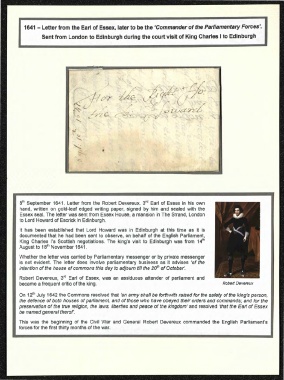 1641 – Letter from the Earl of Essex, later to be the 'Commander of the Parliamentary Forces'.
Sent from London to Edinburgh during the court visit of King Charles I to Edinburgh
For the Right
Howard
8th September 1641, Letter from the Robert Devereux, 3rd Earl of Essex in his own
hand, written on gold-leaf edged writing paper, signed by him and sealed with the
Essex seal. The letter was sent from Essex House, a mansion in The Strand, London
to Lord Howard of Escrick in Edinburgh.
I has been established that Lord Howard was in Edinburgh at this time as it is
documented that he had been sent to observe, on behalf of the English Parliament,
King Charles I's Scottish negotiations. The king's visit to Edinburgh was from 14th
August to 18th November 1641.
Whether the letter was carried by Parliamentary messenger or by private messenger
is not evident. The letter does involve parliamentary business as it advises 'of the
intention of the house of commons this day to adjourn till the 20th of October'.
Robert Devereux, 3rd Earl of Essex, was an assiduous attender of parliament and
become a frequent critic of the king.
On 12th July 1642 the Commons resolved that 'an army shall be forthwith raised for the safety of the king's person,
the defence of both houses of parliament, and of those who have obeyed their orders and commands, and for the
preservation of the true religion, the laws, liberties and peace of the kingdom' and resolved 'that the Earl of Essex
be named general thereof'.
This was the beginning of the Civil War and General Robert Devereux commanded the English Parliament's
forces for the first thirty months of the war.
Robert Devereux